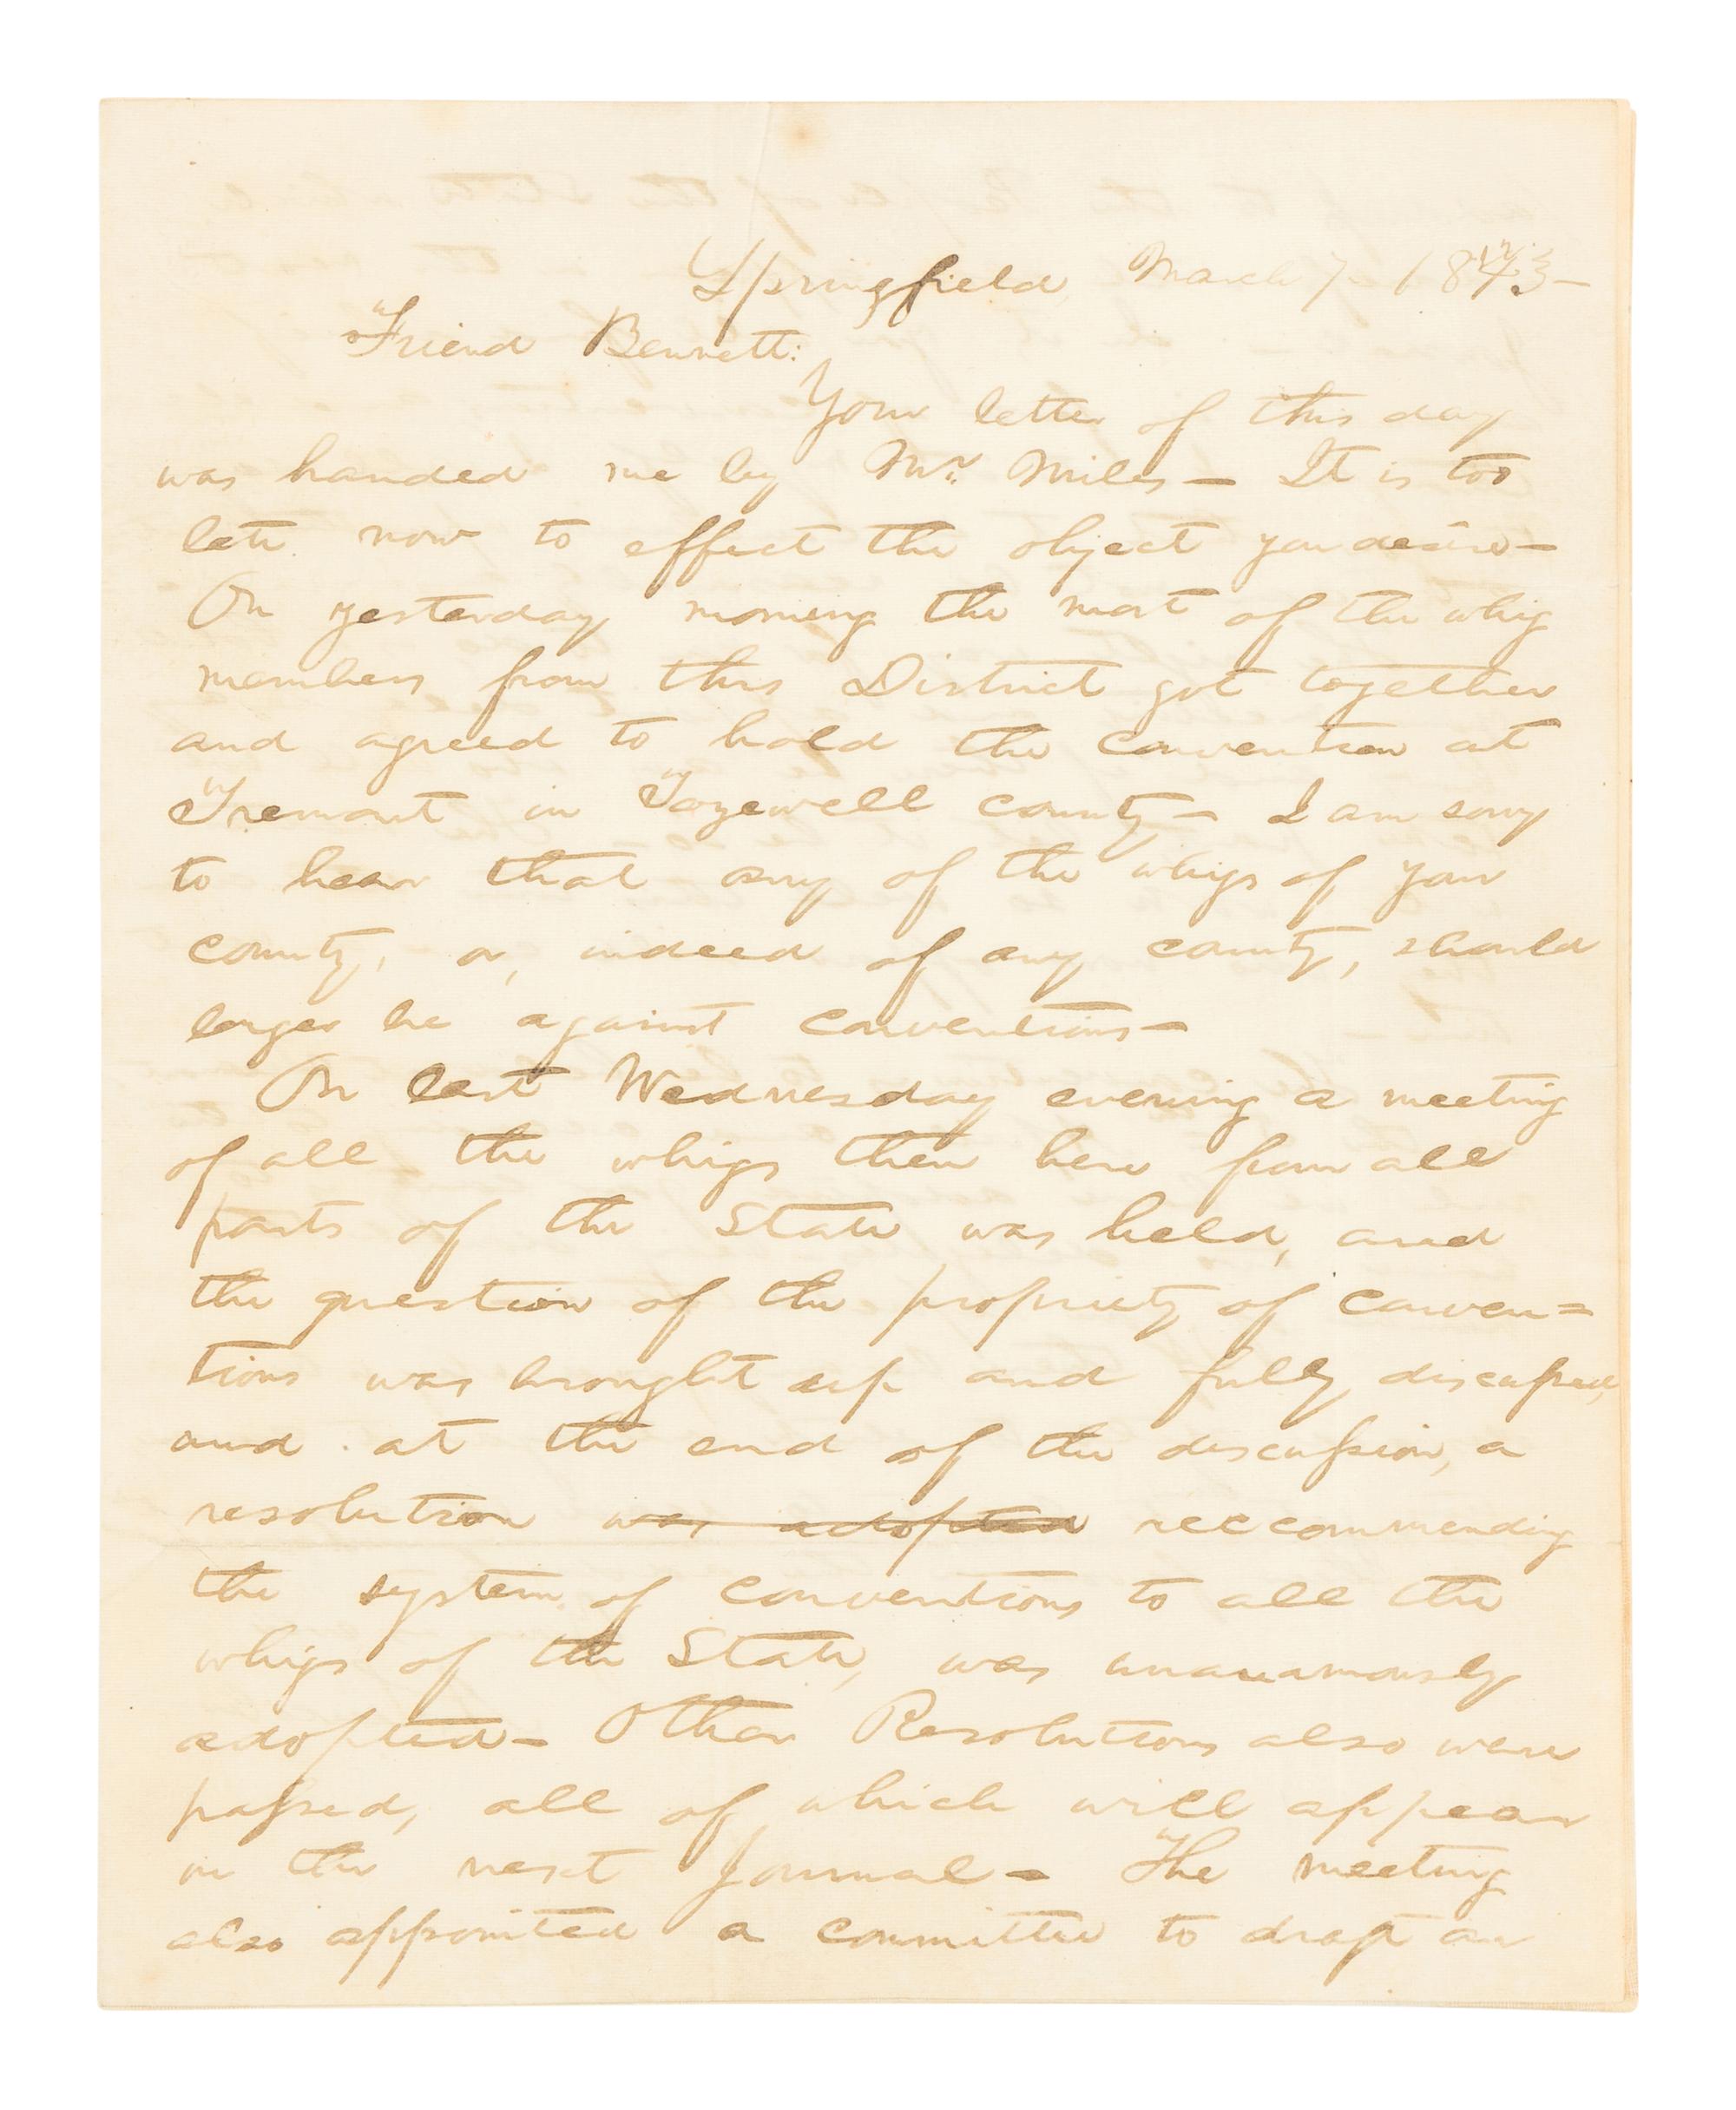 Springfield, March 7- 1843-
Friend Bennett:
Your letter of this day
was handed me by Mr. Miles- It is too
late now to effect the object you desire-
On yesterday morning the most of the whig
members from this District got together
and agreed to hold the convention at
Tremont in Tazewell county- I am sorry
to hear that any of the whigs of your
county, or, indeed of any county, should
longer be against conventions-
On last Wednesday evening a meeting
of all the whigs then here from all
parts of the State was held, and
the question of the propriety of conven=
tions was brought up and fully discussed,
and at the end of the discussion, a
resolution was adopted reccommending
the system of conventions to all the
whigs of the State, was unanimously
adopted- Other Resolutions also were
passed, all of which will appear
in the next Journal- The meeting
also appointed a committee to draft an